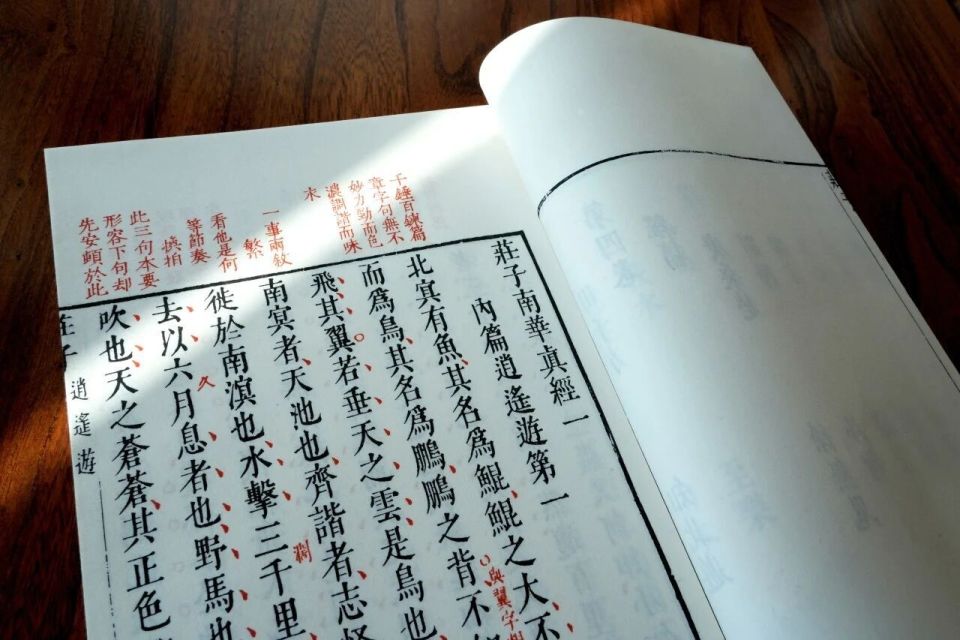 千錘百鍊篇
章字句無不
妙力勁而色
濃調諧而味
一事兩敘
繁
看他是何
等節奏
慎拍
此三句本要
形容下句却
先安頓於此
莊子南華真經一
內篇逍遙遊第一
北冥有魚其名爲鯤鯤之大不
與翼字
而爲鳥其名爲鵬鵬之背不
飛其翼若垂天之雲是鳥也
南冥者天池也齊諧者志怪
徙於南溟也水擊三千里
去以六月息者也野馬也
久
吹也天之蒼蒼其正色
莊子 逍遙遊